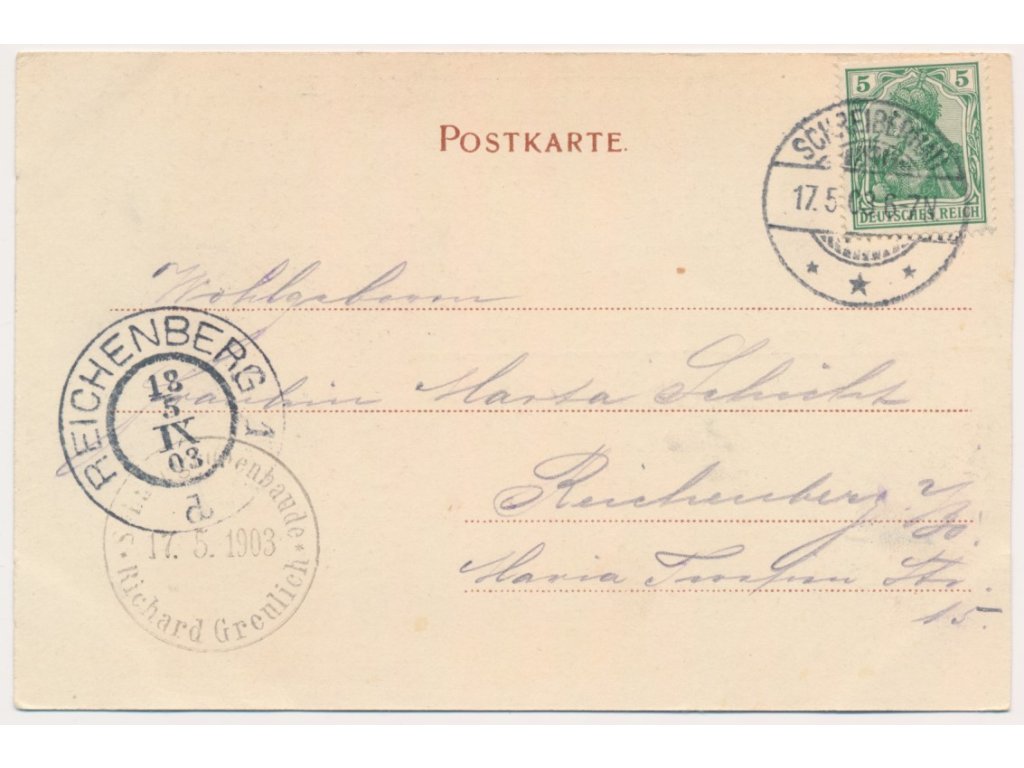 POSTKARTE.
5 5
DEUTSCHES REICH
SCHREIBERHAU
17.5.03.6-7N
Wohlgeboren
Fräulein Marta Schicht
Reichenberg i/Bö.
Maria Theresien Str.
15.
REICHENBERG 1
18
5
IX
03
17. 5. 1903
Richard Greulich